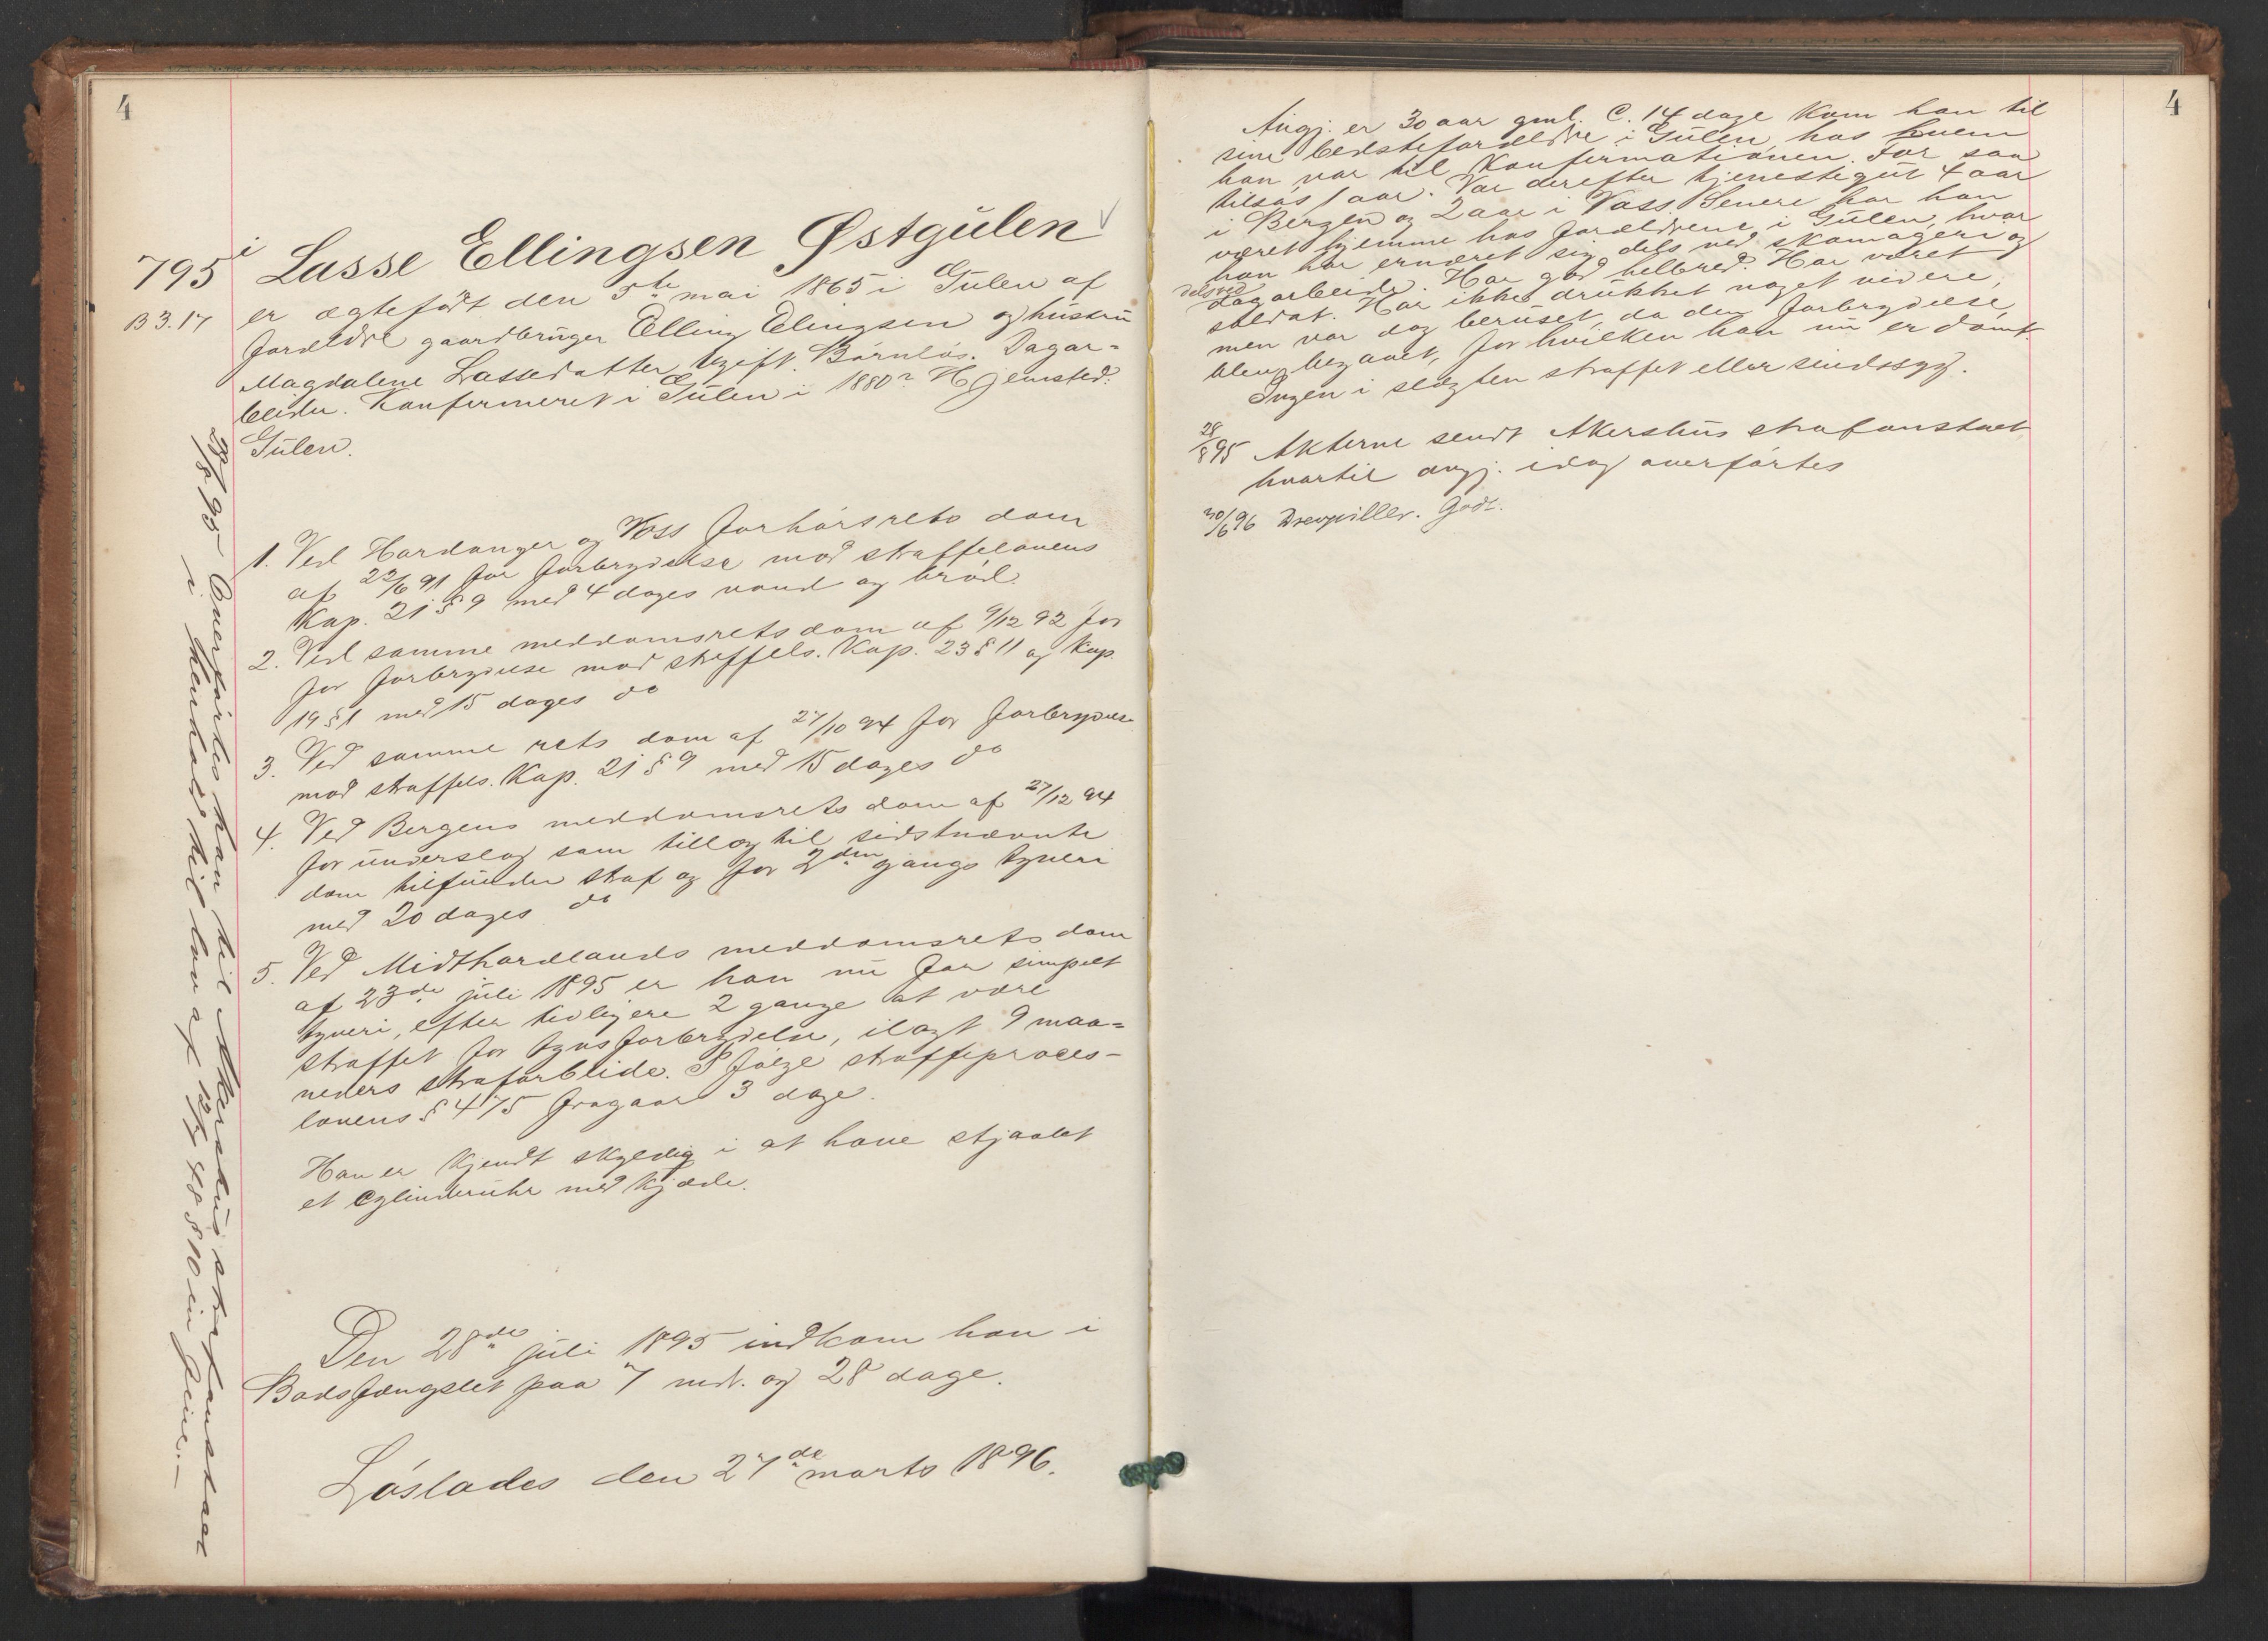 4
795 i Lasse Ellingsen Østgulen
B 3.17 er ægtefødt den 5te mai 1865 i Gulen af
forældre gaardbruger Elling Elingsen og hustru
Magdalene Lassedatter. Ugift. Barnløs. Dagar-
beider. Konfirmeret i Gulen i 1880? Hjemsted:
Gulen.
1. Ved Hardanger og Voss forhørsrets dom
af 22/6 91 for forbrydelse mod straffelovens
Kap. 21 § 9 med 4 dages vand og brød.
2. Ved samme meddomsrets dom af 9/12 92 for
for forbrydelse mod straffels. Kap. 23 § 11 og Kap.
19 § 1 med 15 dages do
3. Ved samme rets dom af 27/10 94 for forbrydelse
mod straffels. Kap. 21 § 9 med 15 dages do
4. Ved Bergens meddomsrets dom af 27/12 94
for underslag som tillæg til sidstnævnte
dom tilfunden straf og for 2den gangs tyveri
med 20 dages do
5. Ved Midthordlands meddomsrets dom
af 23de juli 1895 er han nu for simpelt
tyveri, efter tidligere 2 gange at være
straffet for tyvsforbrydelse, ilagt 9 maa-
neders strafarbeide. I følge straffeproces-
lovens § 475 fragaar 3 dage.
Han er kjendt skyldig i at have stjaalet
et cylinderuhr med kjæde.
Den 28de juli 1895 indkom han i
Bodsfængslet paa 7 mdr. og 28 dage.
Løslades den 27de marts 1896.
28/8 95 Overførtes han til Akershus strafanstalt
i henhold til lov af 12/7 48 § 10 in fine.–
4
Angj. er 30 aar gml. C. 14 dage kom han til
sine bedsteforældre i Gulen, hos hvem
han var til Konfirmationen. For saa
tilsøs 1 aar. Var derefter tjenestegut 4 aar
i Bergen og 2 aar i Voss. Senere har han
været hjemme hos forældrene i Gulen, hvor
han har ernæret sig dels ved skomageri og
dels ved
dagarbeide. Har god helbred. Har været
soldat. Har ikke drukket noget videre,
men var dog beruset, da den forbrydelse
blev begaaet, for hvilken han nu er dømt.
Ingen i slægten straffet eller sindssyg.
28/8 95 Akterne sendt Akershus strafanstalt
hvortil angj. idag overførtes
30/6 96 Godt.